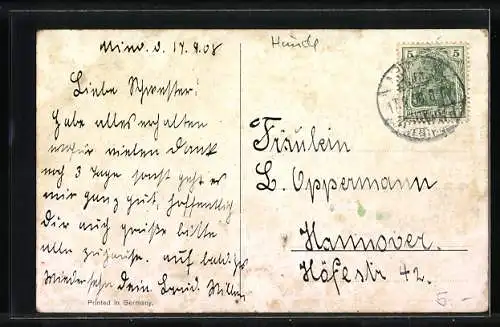 d. 17.9.08
Liebe Schwester!
Habe alles erhalten
vielen Dank
noch 3 Tage sonst geht es
mir ganz gut, hoffentlich
Dir auch grüße bitte
alle zuhause. auf bald'ges
Wiedersehn Dein
Printed in Germany.
Hunde
5 5
Fräulein
L. Oppermann
Hannover.
Höfestr 42.
5.-